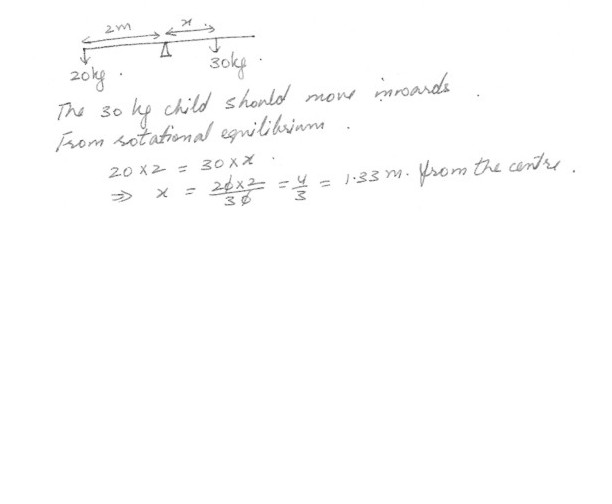 2m x
20kg. 30kg.
The 30 kg child should move inwards.
From rotational equilibrium.
20 × 2 = 30 × x.
⇒ x = 20×2/30 = 4/3 = 1.33 m. from the centre.